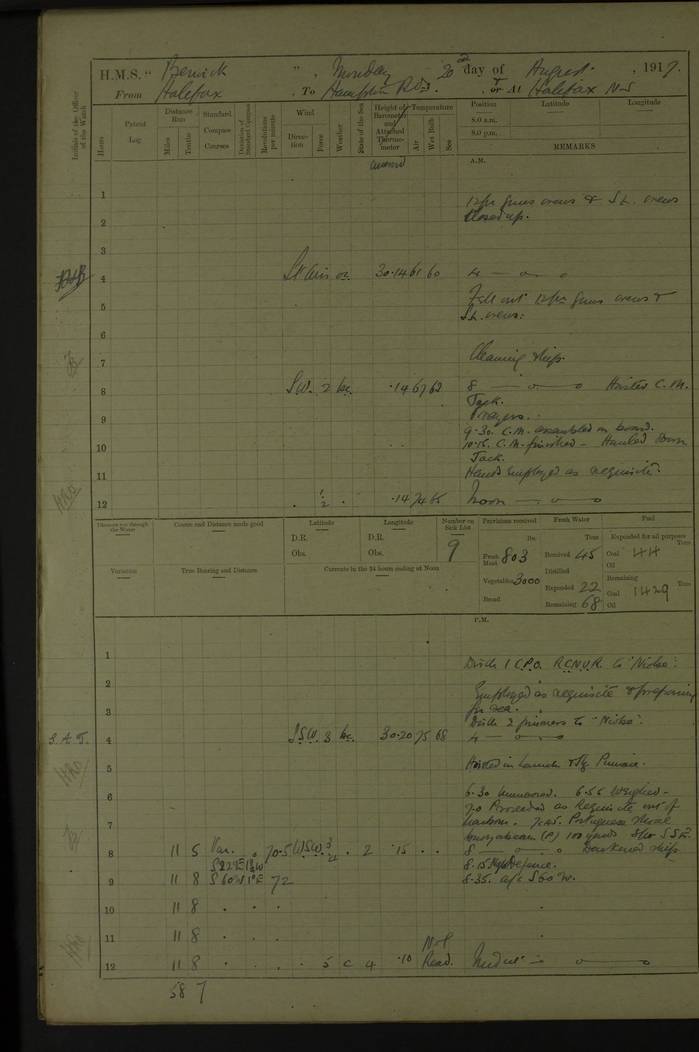 H.M.S. " Berwick " , Monday 20th day of August , 1917.
From Halifax . To Hampton Rds. , or At Halifax N-S
Initials of the Officer of the Watch
Hours
Patent Log
Distance Run
Miles
Tenths
Standard Compass Courses
Deviation of Standard Compass
Revolutions per minute
Wind
Direction
Force
Weather
State of the Sea
Height of Barometer and Attached Thermometer
Temperature
Air
Wet Bulb
Sea
Position Latitude Longitude
8.0 a.m.
8.0 p.m.
REMARKS
A.M.
1
12pr guns crews & S.L. crews
2 closed up.
3
4 30.14 61 60 4
Fell out 12pr guns crews &
5 S.L. crews.
6
7 Cleaning ship.
8 SW. 2 bc. .14 67 63 8 Hoisted C.M.
Jack.
9 Prayers.
9.30. C.M. assembled on board.
10 C.M. finished - Hauled down
Jack.
11 Hands employed as requisite.
12 .14 74 65 Noon
Distance run through the Water
Course and Distance made good
Latitude
D.R.
Obs.
Longitude
D.R.
Obs.
Number on Sick List
9
Provisions received
lbs.
Fresh Meat 803
Vegetables 3000
Bread
Fresh Water
Tons
Received 45
Distilled
Expended 22
Remaining 68
Fuel
Expended for all purposes
Tons
Coal 44
Oil
Remaining
Tons
Coal 1429
Oil
Variation
True Bearing and Distance
Currents in the 24 hours ending at Noon
P.M.
1 Disch 1 C.P.O. R.C.N.V.R. to "Niobe".
2 Employed as requisite & preparing
for sea.
3 Disch 2 prisoners to "Niobe".
S.A.T. 4 SSW. 3 bc. 30.20 75 68 4
5 Hoisted in Launch & Pinnace.
6 6.30 Unmoored. 6.55 Weighed -
7.0 Proceeded as requisite out of
7 harbour. 7.45. Portuguese Shoal
buoy abeam (P) 100 yards S.S.E.
8 11 5 Var. 70.5 WSW 2 .15 8 Darkened ship.
9 11 8 S 60 W 72 8.35. a/c S 60 W.
10 11 8
11 11 8
12 11 8 5 c 4 .10 Not Read.
58 7